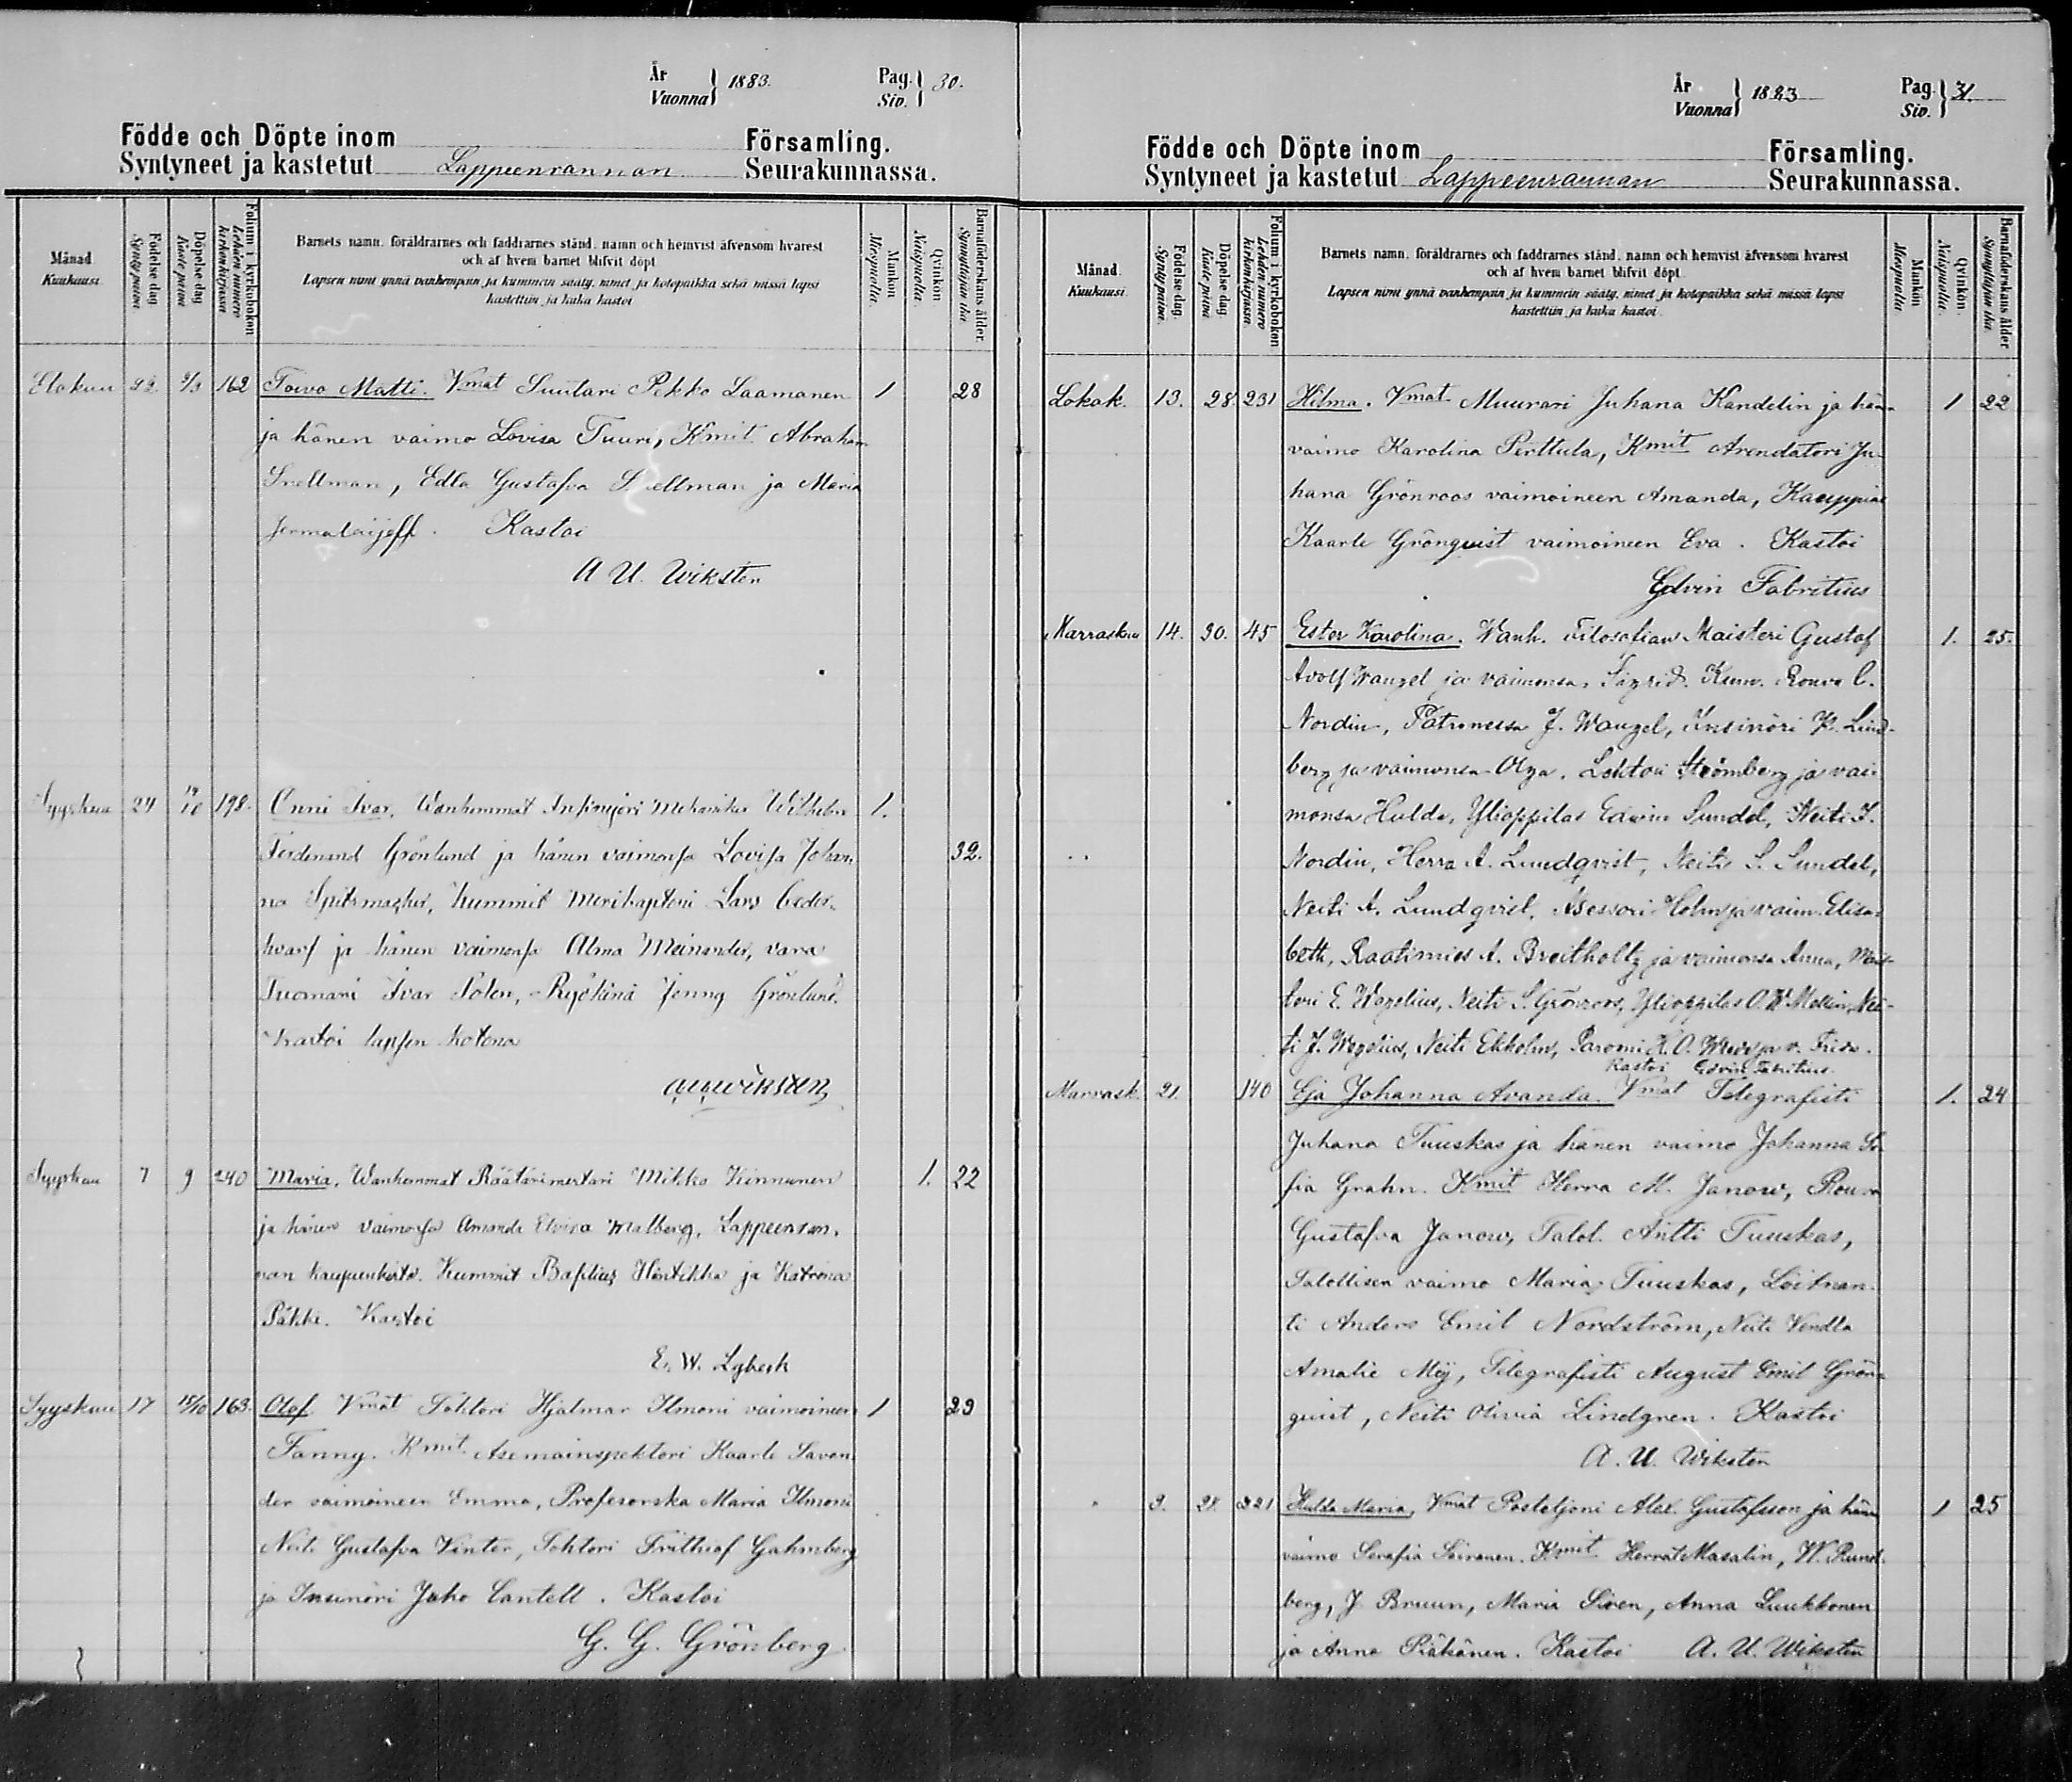 År
Vuonna } 1883.
Pag.
Siv. } 30.
Födde och Döpte inom Församling.
Syntyneet ja kastetut Lappeenrannan Seurakunnassa.
Månad. Kuukausi.
Födelse dag. Syntypäivä.
Döpelse dag. Kastepäivä.
Folium i kyrkoboken. Lehden numero kirkonkirjassa.
Barnets namn, föräldrarnes och faddrarnes stånd, namn och hemvist äfvensom hvarest
och af hvem barnet blifvit döpt.
Lapsen nimi ynnä vanhempain ja kummein sääty, nimet ja kotopaikka sekä missä lapsi
kastettiin ja kuka kastoi.
Mankön. Miespuolia.
Qvinkön. Naispuolia.
Barnaföderskans ålder. Synnyttäjän ikä.
Elokuu 22. 2/9 162 Toivo Matti. Vmat Suutari Pekko Laamanen 1 28
ja hänen vaimo Lovisa Tuuri, Kmit Abraham
Snellman, Edla Gustafva Snellman ja Maria
Jermalaijeff. Kastoi
A U. Wiksten
Syyskuu 24 198. Onni Ivar. Wanhemmat Insinjöri Mehanikus Wilhelm 1.
Ferdinand Grönlund ja hänen vaimonsa Lovisa Johan- 32.
na Spitsmacher, kummit Merikapteni Lars Ceder-
hvarf ja hänen vaimonsa Alma Meinander, vara
Tuomari Ivar Polen, Ryökinä Jenny Grönlund.
Kastoi lapsen kotona
A U Wiksten
Syyskuu 7 9 240 Maria, Wanhemmat Räätärimestari Mikko Kinnunen 1. 22
ja hänen vaimonsa Amanda Elvira Malberg, Lappeenran-
nan kaupunkista. Kummit Basilius Hintikka ja Katrina
Pätki. Kastoi
E. W. Lybeck
Syyskuu 17 18/10 163. Olof Vmat Tohtori Hjalmar Ilmoni vaimoineen 1 29
Fanny. Kmit Asemainspektori Kaarle Savon
der vaimoineen Emma, Professorska Maria Ilmoni
Neiti Gustafva Winter, Tohtori Frithiof Gahmberg
ja Insinöri Juho Cantell. Kastoi
G. G. Grönberg
År
Vuonna } 1883
Pag.
Siv. } 31.
Födde och Döpte inom Församling.
Syntyneet ja kastetut Lappeenrannan Seurakunnassa.
Månad. Kuukausi.
Födelse dag. Syntypäivä.
Döpelse dag. Kastepäivä.
Folium i kyrkoboken. Lehden numero kirkonkirjassa.
Barnets namn, föräldrarnes och faddrarnes stånd, namn och hemvist äfvensom hvarest
och af hvem barnet blifvit döpt.
Lapsen nimi ynnä vanhempain ja kummein sääty, nimet ja kotopaikka sekä missä lapsi
kastettiin ja kuka kastoi.
Mankön. Miespuolia.
Qvinkön. Naispuolia.
Barnaföderskans ålder. Synnyttäjän ikä.
Lokak. 13. 28. 231 Hilma. Vmat Muurari Juhana Kandelin ja hän 1 22
vaimo Karolina Perttula, Kmit Arendatori Ju-
hana Grönroos vaimoineen Amanda, Kauppias
Kaarle Grönquist vaimoineen Eva. Kastoi
Edvin Fabritius
Marraskuu 14. 30. 45 Ester Karolina. Wanh. Filosofian Maisteri Gustaf 1. 25.
Adolf Wangel ja vaimonsa Sigrid. Kum. Rouva C.
Nordin, Patronessa J. Wangel, Insinöri K. Lind-
berg ja vaimonsa Olga. Lehtori Strömberg ja vai
monsa Hulda, Ylioppilas Edwin Sundel, Neiti I.
Nordin, Herra A. Lundqvist, Neiti S. Sundel,
Neiti A. Lundqvist, Asessori Holm ja vaim. Elisa-
beth, Raatimies A. Breitholtz ja vaimonsa Anna, Mais-
teri E. Wegelius, Neiti S. Grönroos, Ylioppilas O. W. Mollin, Nei-
ti J. Wegelius, Neiti Ekholm, Parooni K. O. Wrede ja v. Frida.
Kastoi Edvin Fabritius.
Marrask. 21. 140 Eja Johanna Avanda. Vmat Telegrafisti 1. 24
Juhana Tuuskas ja hänen vaimo Johanna So
fia Grahn. Kmit Herra M. Janow, Rouva
Gustafva Janow, Talol. Antti Tuuskas,
Talollisen vaimo Maria Tuuskas, Löitnan-
ti Anders Emil Nordström, Neiti Vendla
Amalie Mey, Telegrafisti August Emil Grön-
quist, Neiti Olivia Lindgren. Kastoi
A. U. Wiksten
" 3. 28. 221 Hulda Maria, Vmat Posteljoni Alex. Gustafsson ja hän 1 25
vaimo Serafia Soiranen. Kmit Herrat Masalin, W. Rund
berg, J. Bruun, Maria Siren, Anna Luukkonen
ja Anna Räkänen. Kastoi A. U. Wiksten